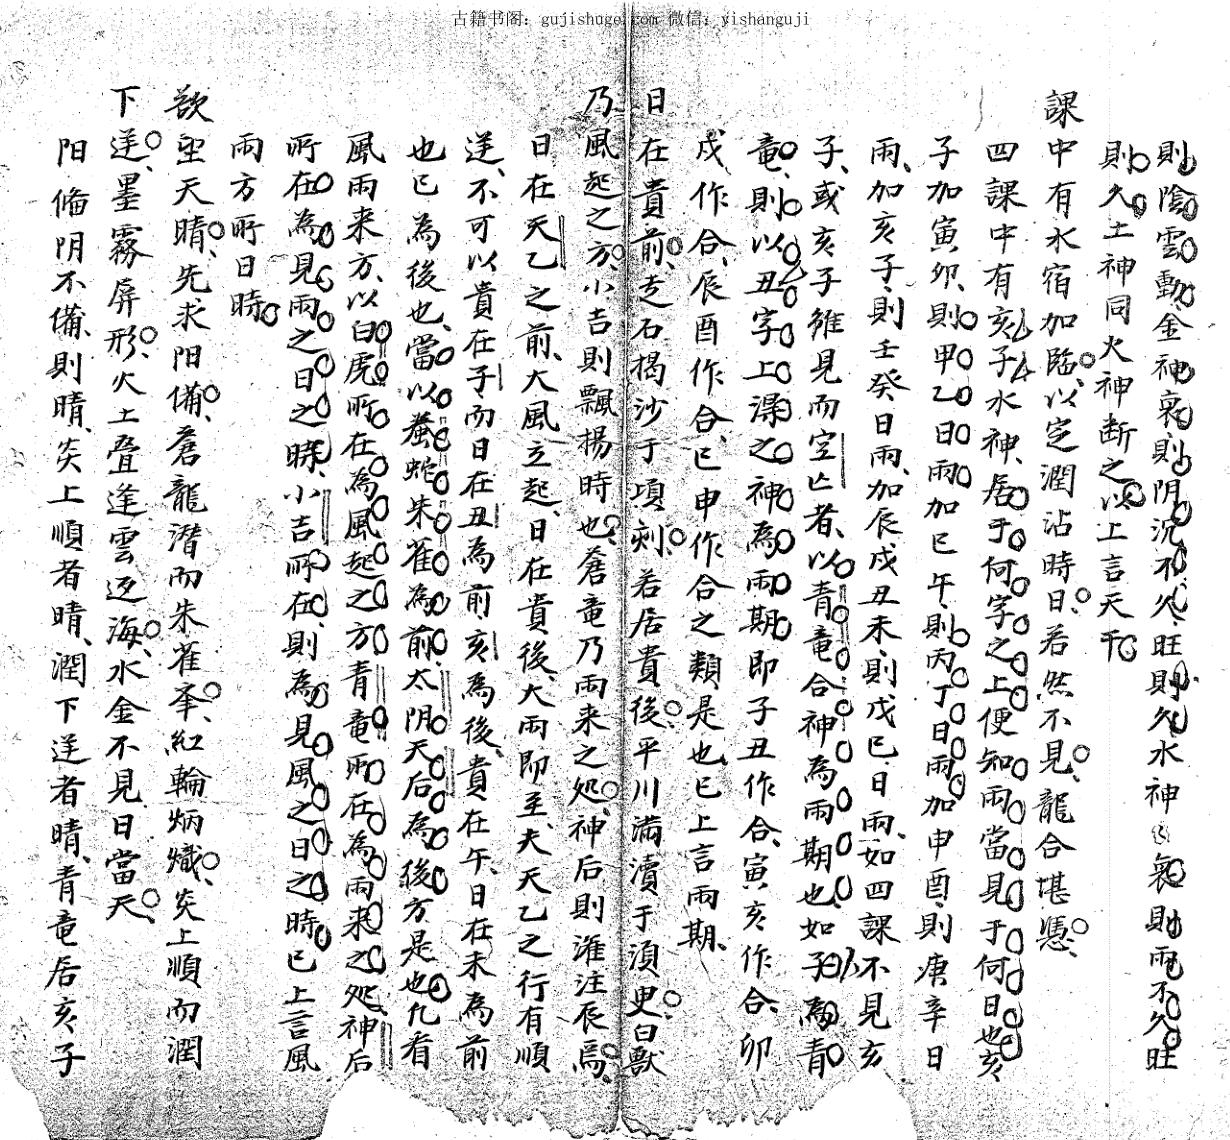 古籍书阁：gujishuge.com 微信：yishanguji
則陰雲動金神衰則阴沉不久旺則久水神衰則雨不久旺
則久土神同火神断之以上言天干
課中有水宿加臨以定潤沾時日若然不見龍合堪憑
四課中有亥子水神居于何字之上便知雨當見于何日也亥
子加寅卯則甲乙日雨加巳午則丙丁日雨加申酉則庚辛日
雨加亥子則壬癸日雨加辰戌丑未則戊己日雨如四課不見亥
子或亥子雖見而空亡者以青竜合神為雨期也如子為青
竜則以丑字上淂之神為雨期即子丑作合寅亥作合卯
戌作合辰酉作合巳申作合之類是也已上言雨期
日在貴前走石揭沙于項刻若居貴後平川滿瀆于湏臾曰獸
乃風起之方小吉則飄揚時也蒼竜乃雨来之処神后則淮注辰焉
日在天乙之前大風立起日在貴後大雨即至夫天乙之行有順
逆不可以貴在子而日在丑為前亥為後貴在午日在未為前
也巳為後也當以螣蛇朱雀為前太阴天后為後方是也凡看
風雨来方以白虎所在為風起之方青竜所在為雨来之処神后
所在為見雨之日之時小吉所在則為見風之日之時已上言風
雨方所日時
欲望天晴先求阳備蒼龍潜而朱雀夆紅輪炳熾炎上順而潤
下逆墨霧屏形火土叠逢雲返海水金不見日當天
阳俻阴不備則晴炎上順者晴潤下逆者晴青竜居亥子